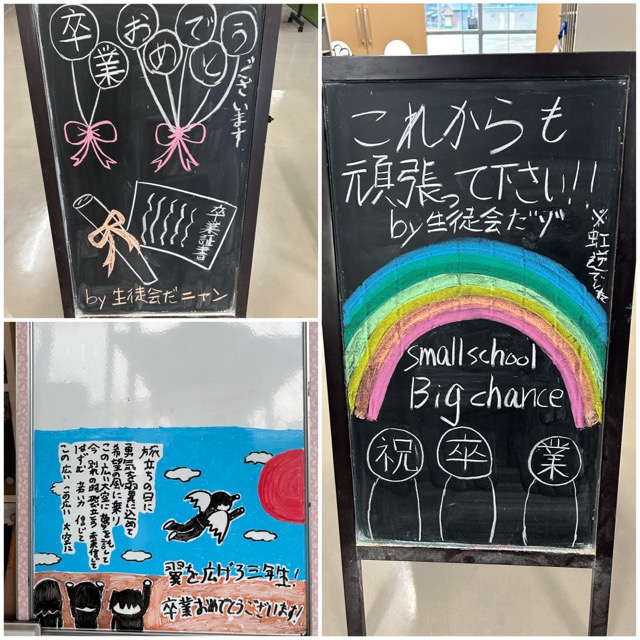 卒業
おめでとう
ございます
卒業証書
by 生徒会だニャン
旅立ちの日に
勇気を翼に込めて
希望の風に乗り
この広い大空に夢を託して
今 別れの時 飛び立とう 未来信じて
はずむ 若い力 信じて
この広い この広い 大空に
翼を広げろ三年生!
卒業おめでとうございます!
これからも
頑張って下さい!!
by 生徒会だゾ
※虹逆でした
smallschool
Bigchance
祝卒業